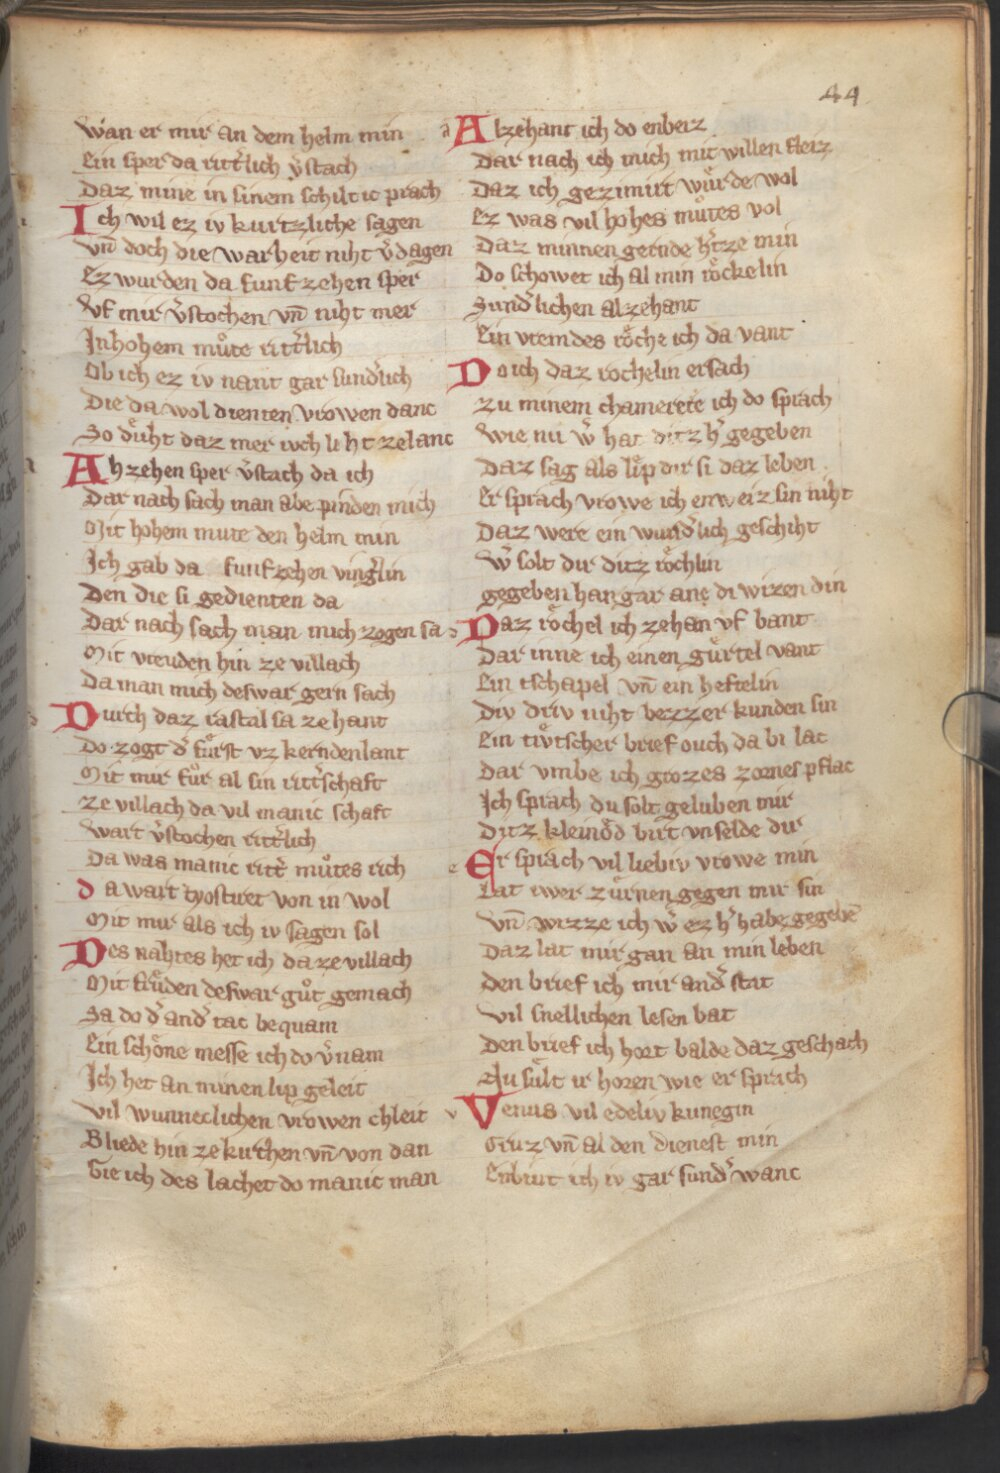 44
wan er mir an dem helm min
Ein sper da ritt̓lich v̓stach
Daz mine in sinem schilt ic prach
Ich wil ez iv kurtzliche sagen
vn̄ doch die warheit niht v̓dagen
Ez wurden da funfzehen sper
Vf mir v̓stochen vn̄ niht mer
Jn hohem muͦte ritt̓lich
Ob ich ez iv nant gar sund̓lich
Die da wol dienten vrowen danc
So duͤht daz mer ivch liht ze lanc
Ahzehen sper v̓stach da ich
Dar nach sach man abe pinden mich
Mit hohem mute den helm min
Jch gab da funfzehen ving̓lin
Den die si gedienten da
Dar nach sach man mich zogen sa
Mit vreuden hin ze villach
Da man mich deswar gern sach
Durch daz castal sa ze hant
Do zogt d̓ fuͤrst vz kerndenlant
Mit mir fuͦr al sin ritt̓schaft
ze villach da vil manic schaft
wart v̓stochen ritt̓lich
Da was manic ritt̓ muͦtes rich
da wart tyostiret von in wol
Mit mir als ich iv sagen sol
Des nahtes het ich da ze villach
Mit frǎuden deswar guͦt gemach
Sa do d̓ and̓ tac bequam
Ein schoͤne messe ich do v̓nam
Jch het an minen lip geleit
vil wunneclichen vrowen chleit
Bliede hin ze kirchen vn̄ von dan
Gie ich des lachet do manic man
a Alzehant ich do enberz
Dar nach ich mich mit willen sleiz
Daz ich gezimirt wuͤrde wol
Ez was vil hohes muͦtes vol
Daz minnen gernde h̓tze min
Do schowet ich al min roͤckelin
Sund̓lichen alzehant
Ein vremdes roͤche ich da vant
Do ich daz rochelin ersach
zu minem chamerere ich do sprach
wie nu w̓ hat ditz h̓ gegeben
Daz sag als lip dir si daz leben
Er sprach vrowe ich enweiz sin niht
Daz were ein wund̓lich geschiht
w̓ solt dir ditz roͤchlin
gegeben han gar ane di wizen din
Daz roͤchel ich zehan vf bant
Dar inne ich einen guͤrtel vant
Ein tschapel vn̄ ein heftelin
Div driv niht bezzer kunden sin
Ein tiv̓tscher brief ouch da bi lac
Dar vmbe ich grozes zornes pflac
Jch sprach du solt geluben mir
Ditz kleinoͤd birt vnselde dir
e Er sprach vil liebiv vrowe min
Lat iwer zuͤrnen gegen mir sin
vn̄ wizze ich w̓ ez h̓ habe gegebē
Daz lat mir gan an min leben
Den brief ich mir and̓ stat
vil snellichen lesen bat
Den brief ich hort balde daz geschach
Nu suͤlt ir horen wie er sprach
v Venus vil edeliv kunegin
Gruz vn̄ al den dienest min
Enbiut ich iv gar sund̓ wanc